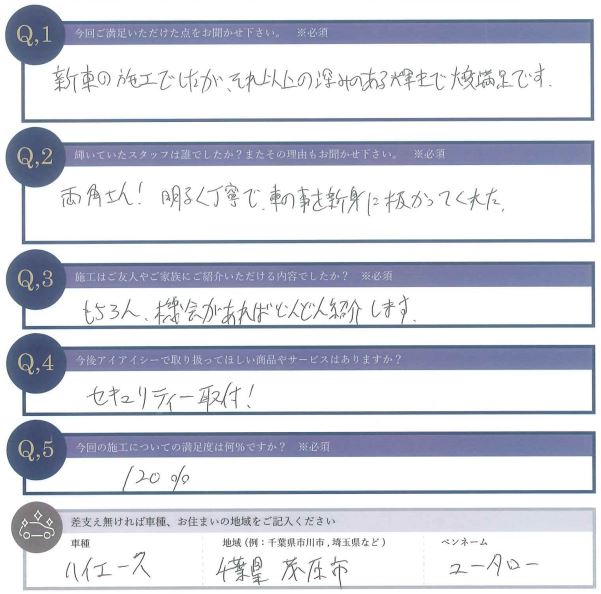 Q,1 今回ご満足いただけた点をお聞かせ下さい。 ※必須
新車の施工でしたが、それ以上の深みのある輝きで大変満足です。
Q,2 輝いていたスタッフは誰でしたか?またその理由もお聞かせ下さい。 ※必須
両角さん! 明るく丁寧で、車の事を新身に扱かってくれた。
Q,3 施工はご友人やご家族にご紹介いただける内容でしたか? ※必須
もちろん、機会があればどんどん紹介します。
Q,4 今後アイアイシーで取り扱ってほしい商品やサービスはありますか?
セキュリティー取付!
Q,5 今回の施工についての満足度は何%ですか? ※必須
120%
差支え無ければ車種、お住まいの地域をご記入ください
車種 地域(例:千葉県市川市,埼玉県など) ペンネーム
ハイエース 千葉県 茂原市 ユータロー